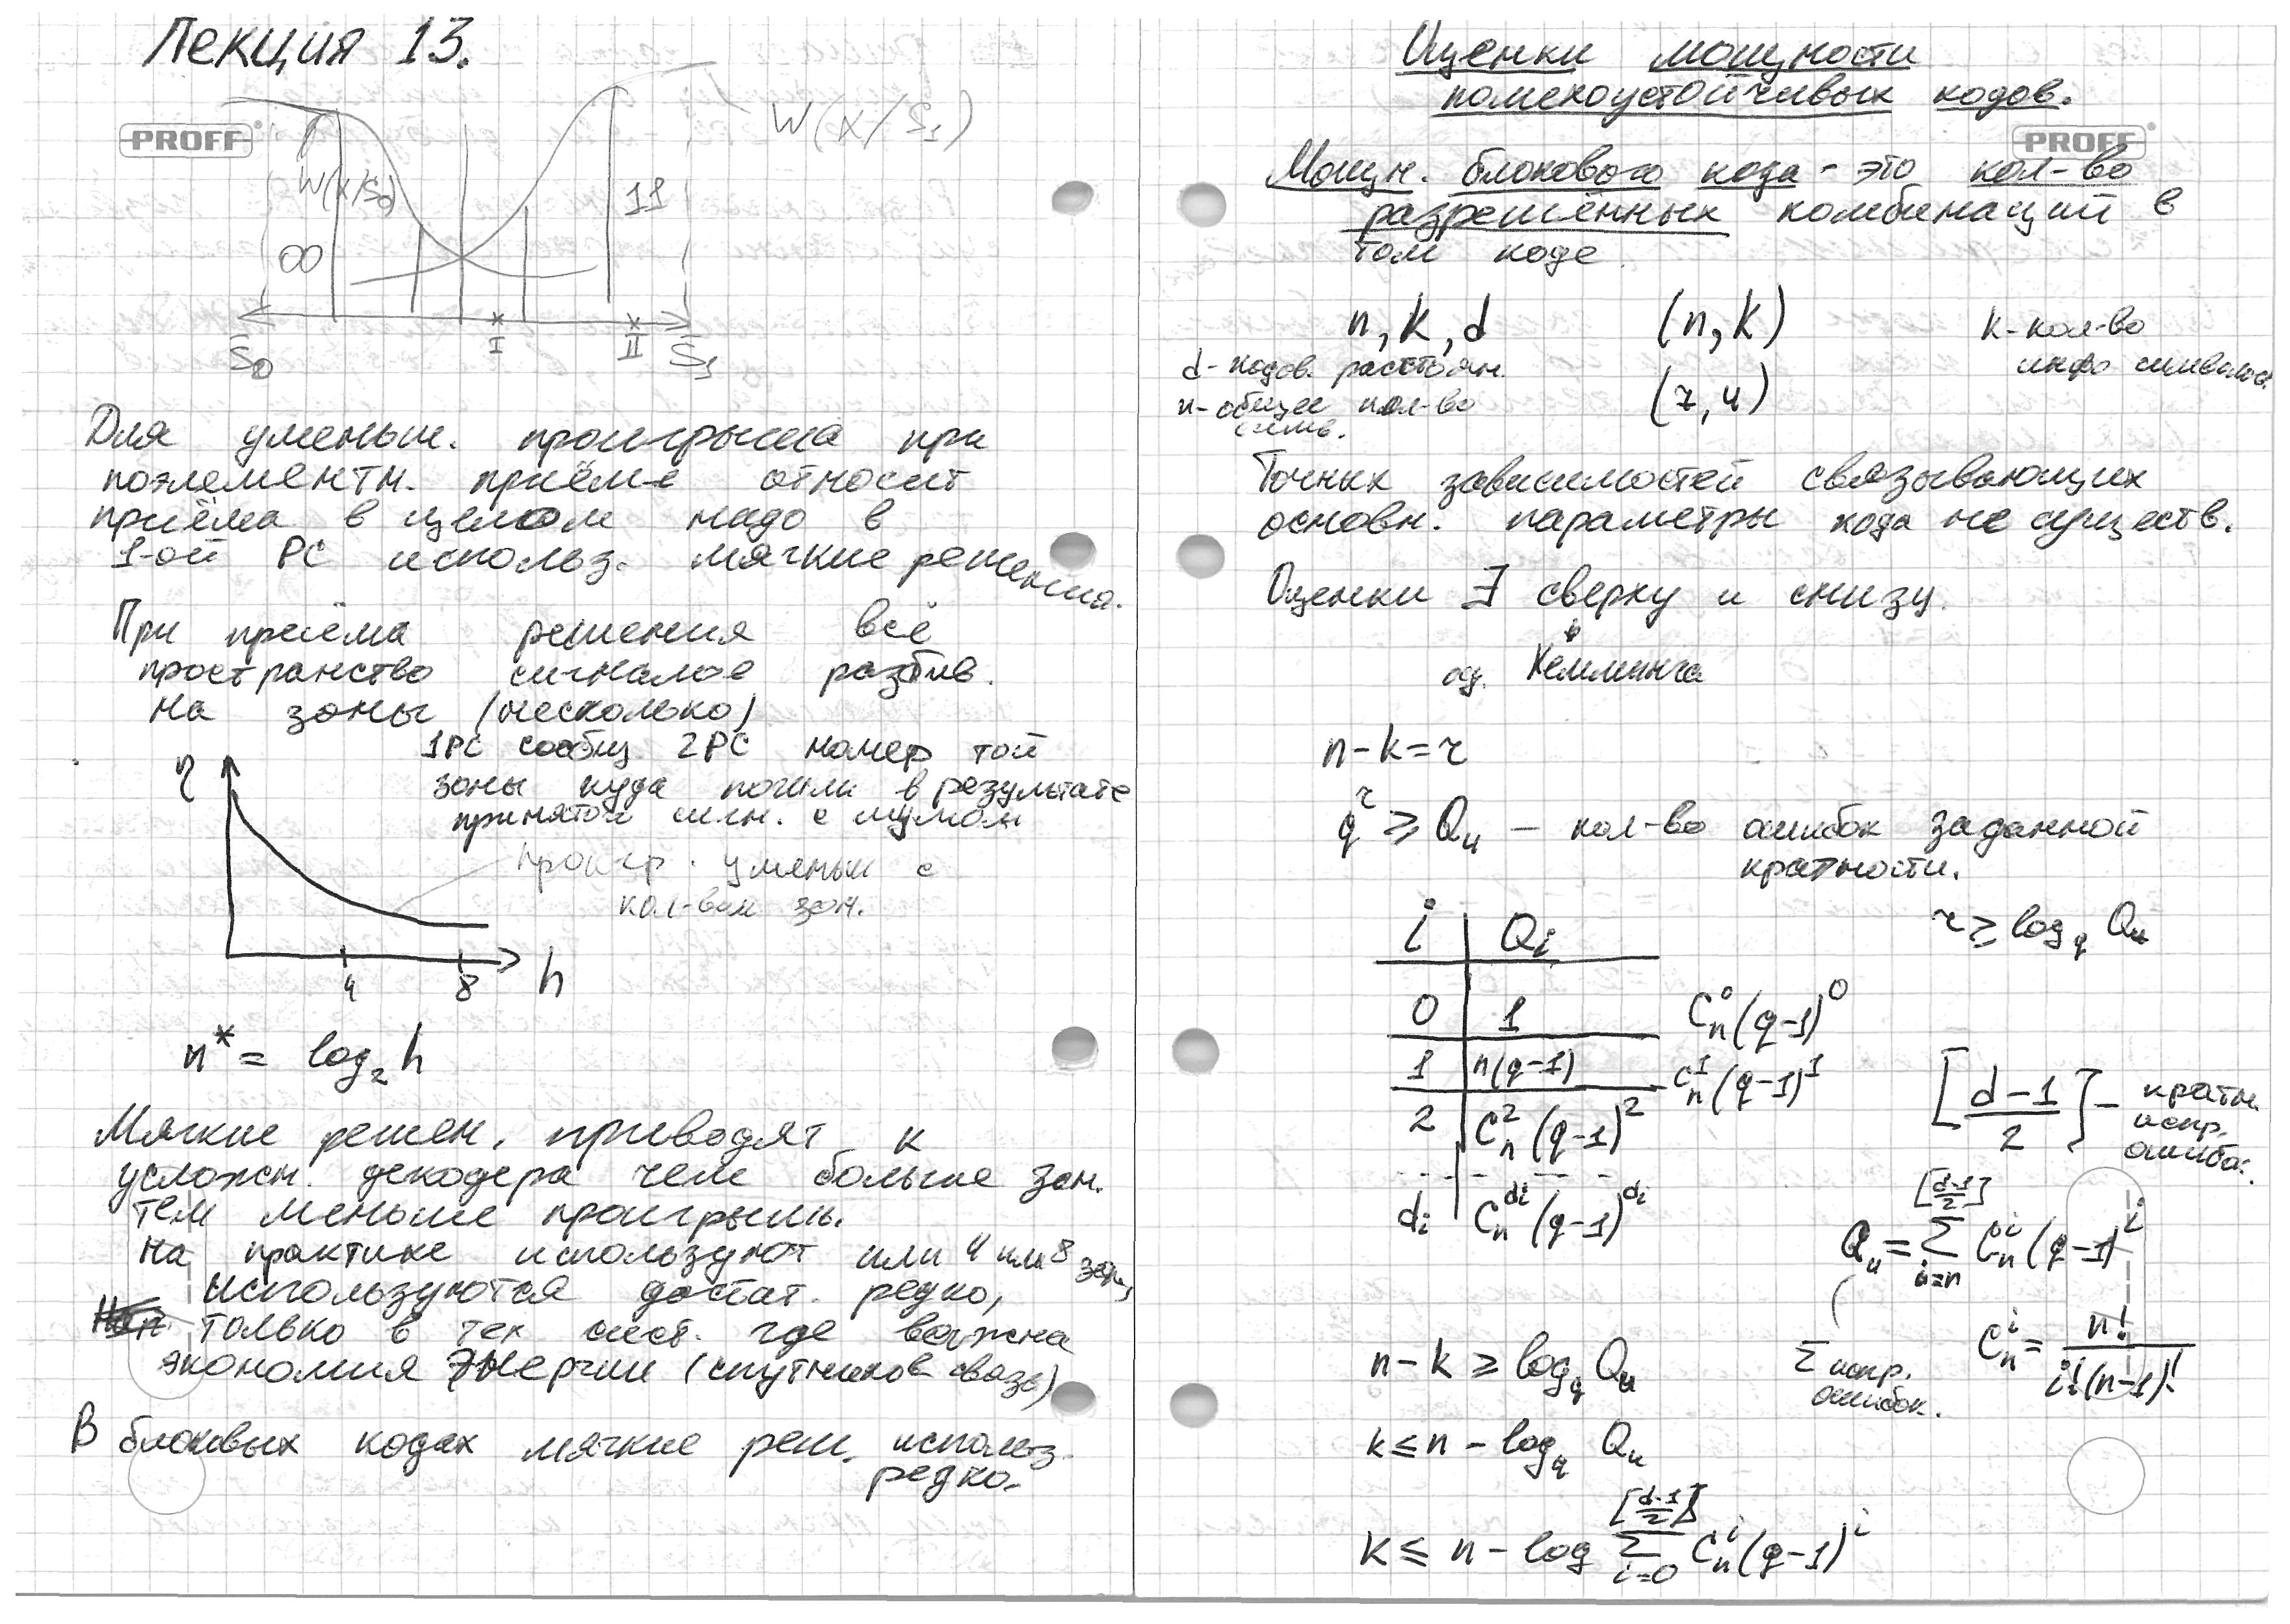 Лекция 13.
PROFF
W(x/S₁)
W(x/S₀)
00
11
S₀
I
II
S₁
Для уменьш. проигрыша при
поэлементн. приёме относит
приёма в целом надо в
1-ой РС использ. мягкие решения.
При приёма решения всё
пространство сигналов разбив.
на зоны (несколько)
1РС сообщ 2РС номер той
зоны куда попали в результате
принятой сигн. с шумом
η
проигр. уменьш с
кол-вом зон.
4
8
h
n* = log₂ h
Мягкие решен. приводят к
усложн. декодера чем больше зон.
тем меньше проигрыш.
на практике используют или 4 или 8 зон,
используются достат. редко,
только в тех сист. где важна
экономия энергии (спутников связь)
В блоковых кодах мягкие реш. использ.
редко.
Оценки мощности
помехоустойчивых кодов.
PROFF
Мощн. блокового кода - это кол-во
разрешённых комбинаций в
том коде.
n, k, d (n, k) k - кол-во
инфо символов.
d - кодов. расстоян.
(7, 4)
n - общее кол-во
симв.
Точных зависимостей связывающих
основн. параметры кода не существ.
Оценки ∃ сверху и снизу.
Хемминга
n - k = r
q^r ≥ Qᵤ — кол-во ошибок заданной
кратности.
r ≥ log_q Qᵤ
i | Qᵢ
0 | 1 C_n^0 (q-1)^0
1 | n(q-1) C_n^1 (q-1)^1
2 | C_n^2 (q-1)^2
[(d-1)/2] - кратн.
испр.
ошибок.
dᵢ | C_n^{dᵢ} (q-1)^{dᵢ}
Qᵤ = Σ_{i=n}^{[(d-1)/2]} C_n^i (q-1)^i
Σ испр.
ошибок.
C_n^i = n! / i!(n-1)!
n - k ≥ log_q Qᵤ
k ≤ n - log_q Qᵤ
k ≤ n - log Σ_{i=0}^{[(d-1)/2]} C_n^i (q-1)^i